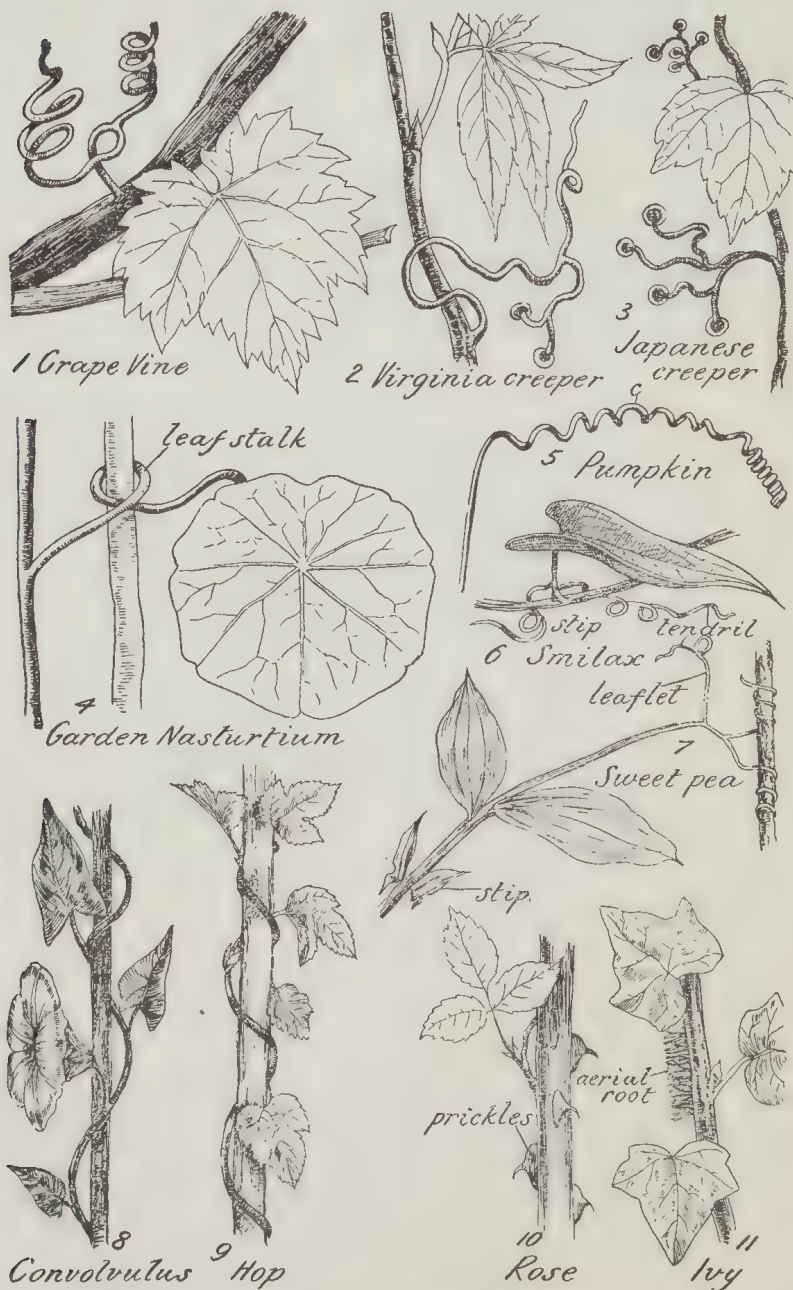 1 Grape Vine
2 Virginia creeper
3
Japanese
creeper
leaf stalk
4
Garden Nasturtium
c
5 Pumpkin
stip tendril
6 Smilax
leaflet
7
Sweet pea
stip.
8
Convolvulus
9 Hop
prickles
10
Rose
aerial
root
11
Ivy